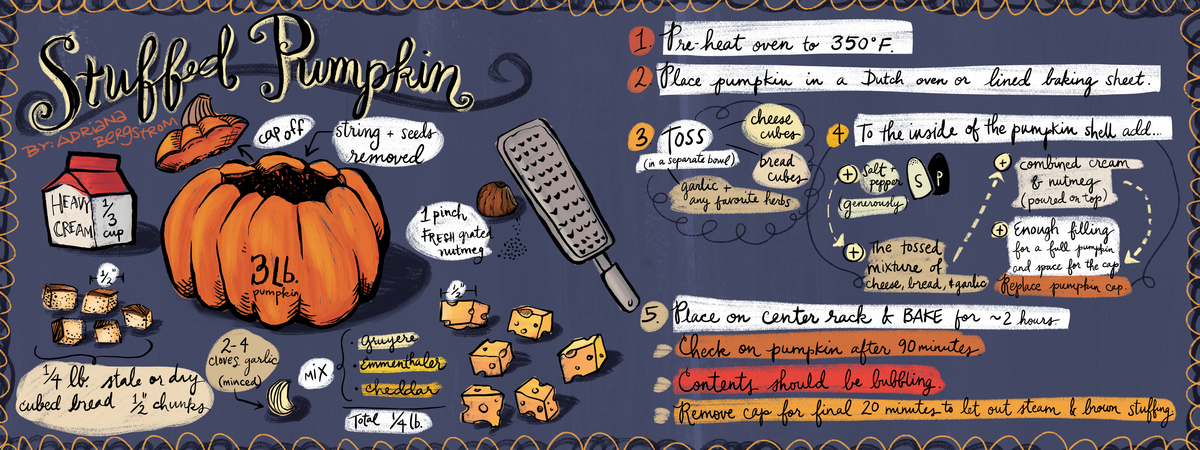 Stuffed Pumpkin
BY: ADRIANA
BERGSTROM
cap off
string + seeds
removed
HEAVY
CREAM
1/3
cup
3 Lb.
pumpkin
1 pinch
FRESH grated
nutmeg
1/2"
1/4 lb. stale or dry
cubed bread 1/2" chunks
2-4
cloves garlic
(minced)
MIX
gruyere
emmenthaler
cheddar
Total 1/4 lb.
1/2"
1. Pre-heat oven to 350°F.
2. Place pumpkin in a Dutch oven or lined baking sheet.
3 TOSS
(in a separate bowl)
cheese
cubes
bread
cubes
garlic +
any favorite herbs
4 To the inside of the pumpkin shell add...
+ salt
pepper
generously
S P
+ The tossed
mixture of
cheese, bread, + garlic
+ combined cream
& nutmeg
(poured on top)
+ Enough filling
for a full pumpkin
and space for the cap
Replace pumpkin cap.
5. Place on center rack & BAKE for ~2 hours
Check on pumpkin after 90 minutes.
Contents should be bubbling.
Remove cap for final 20 minutes to let out steam & brown stuffing.